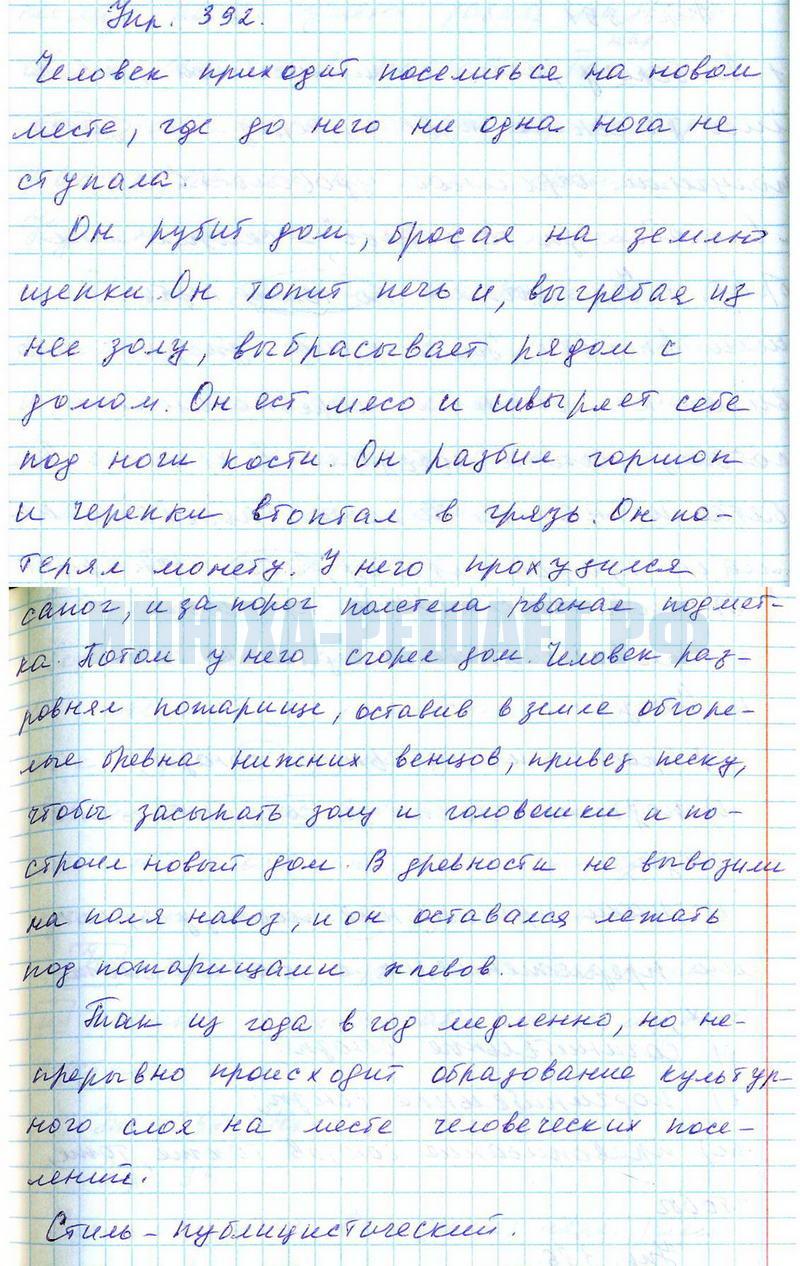 Упр. 392.
Человек приходит поселиться на новом
месте, где до него ни одна нога не
ступала.
Он рубит дом, бросая на землю
щепки. Он топит печь и, выгребая из
нее золу, выбрасывает рядом с
домом. Он ест мясо и швыряет себе
под ноги кости. Он разбил горшок
и черепки втоптал в грязь. Он по-
терял монету. У него прохудился
сапог, и за порог полетела рваная подмет-
ка. Потом у него сгорел дом. Человек раз-
ровнял пожарище, оставив в земле обгоре-
лые бревна нижних венцов, привез песку,
чтобы засыпать золу и головешки и по-
строил новый дом. В древности не вывозили
на поля навоз, и он оставался лежать
под пожарищами хлевов.
Так из года в год медленно, но не-
прерывно происходит образование культур-
ного слоя на месте человеческих посе-
лений.
Стиль – публицистический.
ИЛЮХА-РЕШАЕТ.РФ